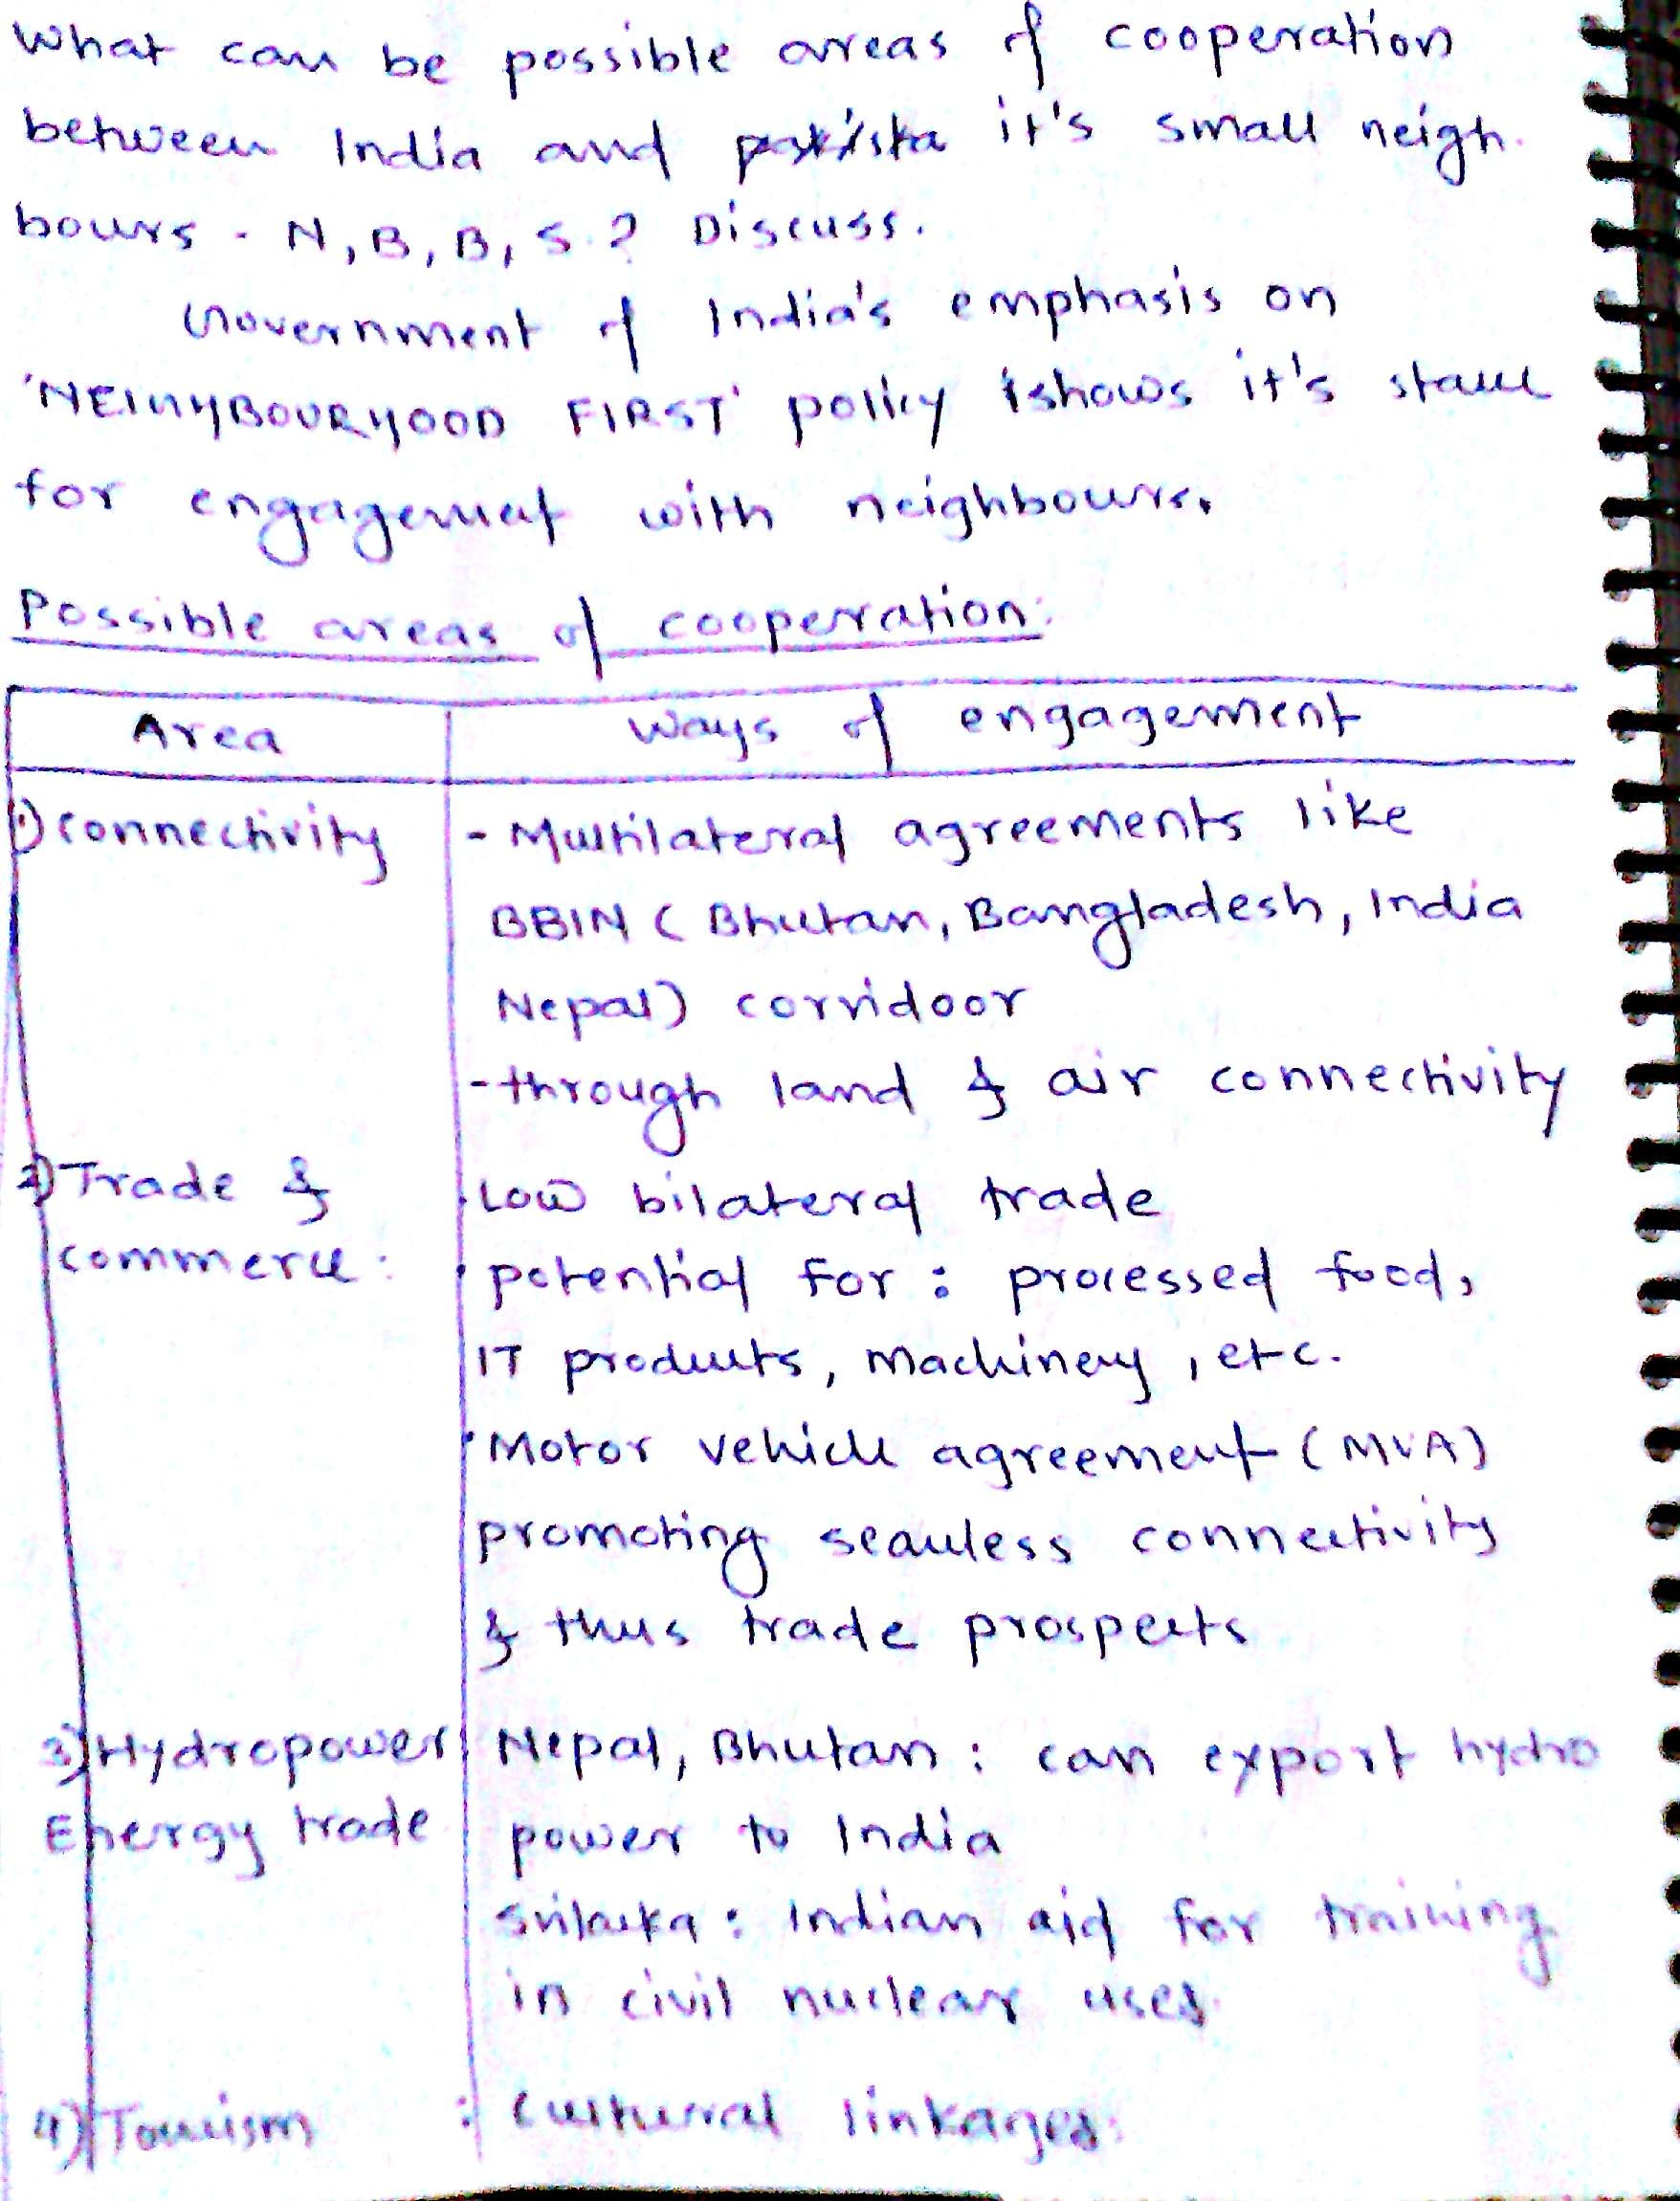 What can be possible areas of cooperation
between India and it's small neigh.
bours - N, B, B, S ? Discuss.
Government of India's emphasis on
'NEIGHBOURHOOD FIRST' policy shows it's
for engagement with neighbours.
Possible areas of cooperation:
Area | Ways of engagement
1) Connectivity | - Multilateral agreements like
BBIN ( Bhutan, Bangladesh, India
Nepal) corridoor
- through land & air connectivity
2) Trade & | . Low bilateral trade
commerce : | . potential for : processed food,
IT products, machinery, etc.
. Motor vehicle agreement (MVA)
promoting seamless connectivity
& thus trade prospects
3) Hydropower | Nepal, Bhutan : can export hydro
Energy trade | power to India
Srilanka : Indian aid for training
in civil nuclear uses.
4) Tourism | : Cultural linkages.